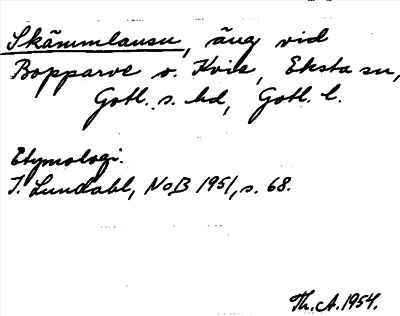 Skämmlausu, äng vid
Bopparve o. Kvie, Eksta sn,
Gotl. s. hd, Gotl. l.
Etymologi.
I. Lundahl, NoB 1951, s. 68.
Th. A. 1954.